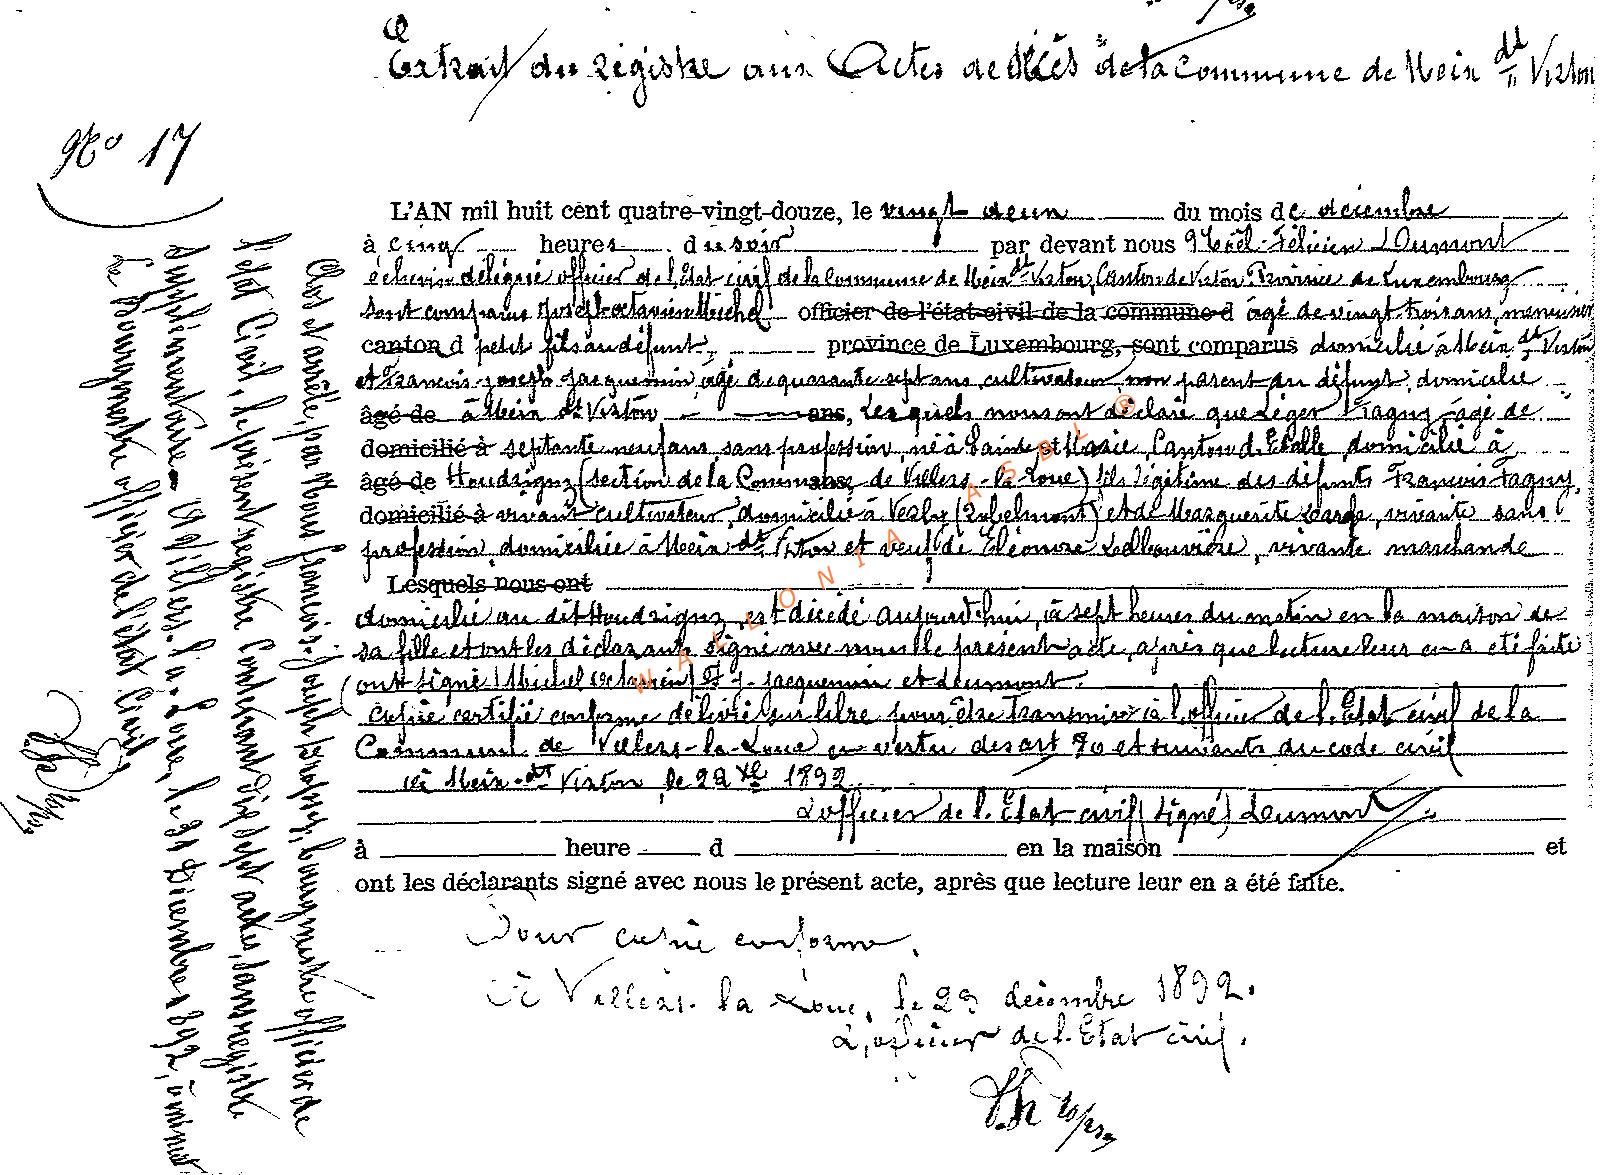 Extrait du registre aux Actes de décès de la Commune de Meix dt Virton
No 17
L'AN mil huit cent quatre-vingt-douze, le vingt deux du mois de décembre
à cinq heures du soir par devant nous Noël-Félicien Dumont
échevin délégué officier de l'Etat civil de la Commune de Meix dt Virton, Canton de Virton, Province de Luxembourg
sont comparus Joseph-Octavien Michel officier de l'état-civil de la commune d âgé de vingt trois ans, menuisier
canton d petit fils au défunt, province de Luxembourg, sont comparus domicilié à Meix dt Virton
et François-Joseph Jacquemin, âgé de quarante sept ans, cultivateur, non parent au défunt, domicilié
âgé de à Meix dt Virton ans, Lesquels nous ont déclaré que Léger Fagny âgé de
domicilié à septante neuf ans, sans profession, né à Sainte Marie, Canton d'Etalle, domicilié à
âgé de Houdrigny (section de la Commune de Villers-la-Loue) fils légitime des défunts François Fagny,
domicilié à vivant cultivateur, domicilié à et de Marguerite vivante sans
profession, domiciliée à Meix dt Virton et veuf de Eléonore vivante marchande
Lesquels nous ont
domicilié au dit Houdrigny, est décédé aujourd'hui, à sept heures du matin en la maison de
sa fille et ont les déclarants signé avec nous le présent acte, après que lecture leur en a été faite
(ont signé) Michel Octavien, F. J. Jacquemin et Dumont.
Copie certifiée conforme délivrée sur libre pour être transmise à l'officier de l'Etat civil de la
Commune de Villers-la-Loue en vertu des art 80 et suivants du code civil
à Meix-dt Virton, le 22 Xbre 1892
L'officier de l'Etat-civil (signé) Dumont
à heure d en la maison et
ont les déclarants signé avec nous le présent acte, après que lecture leur en a été faite.
Pour copie conforme,
à Villers-la-Loue, le 23 décembre 1892.
L'officier de l'Etat civil.
Clos et arrêté, par Nous François-Joseph bourgmestre officier de
l'état Civil, le présent registre Contenant dix sept actes, sans registre
supplémentaire à Villers-la-Loue, le 31 Décembre 1892, à minuit
Le Bourgmestre officier de l'état Civil,
WALLONIA ASBL ®